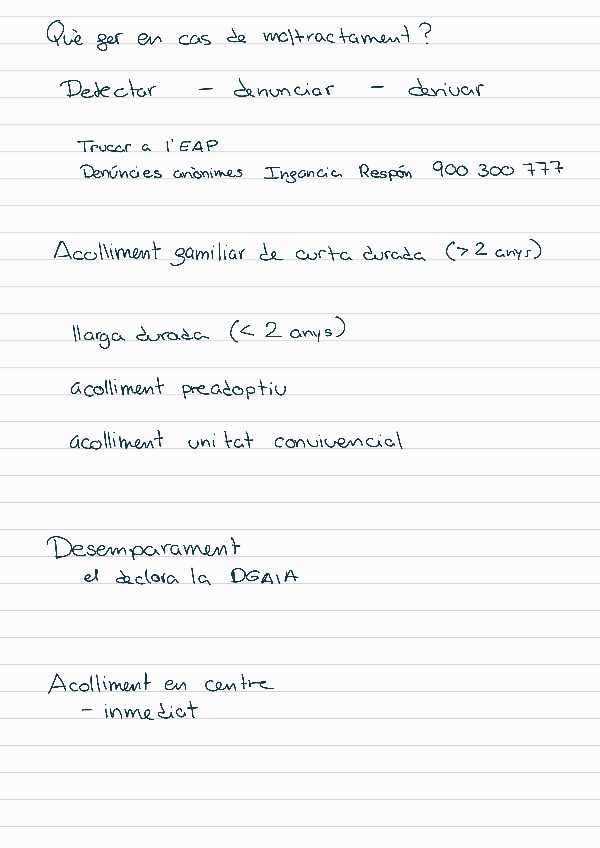 Què fer en cas de maltractament?
Detectar - denunciar - derivar
Trucar a l'EAP
Denúncies anònimes Infancia Respón 900 300 777
Acolliment familiar de curta durada (> 2 anys)
llarga durada (< 2 anys)
acolliment preadoptiu
acolliment unitat convivencial
Desemparament
el declara la DGAIA
Acolliment en centre
- inmediat